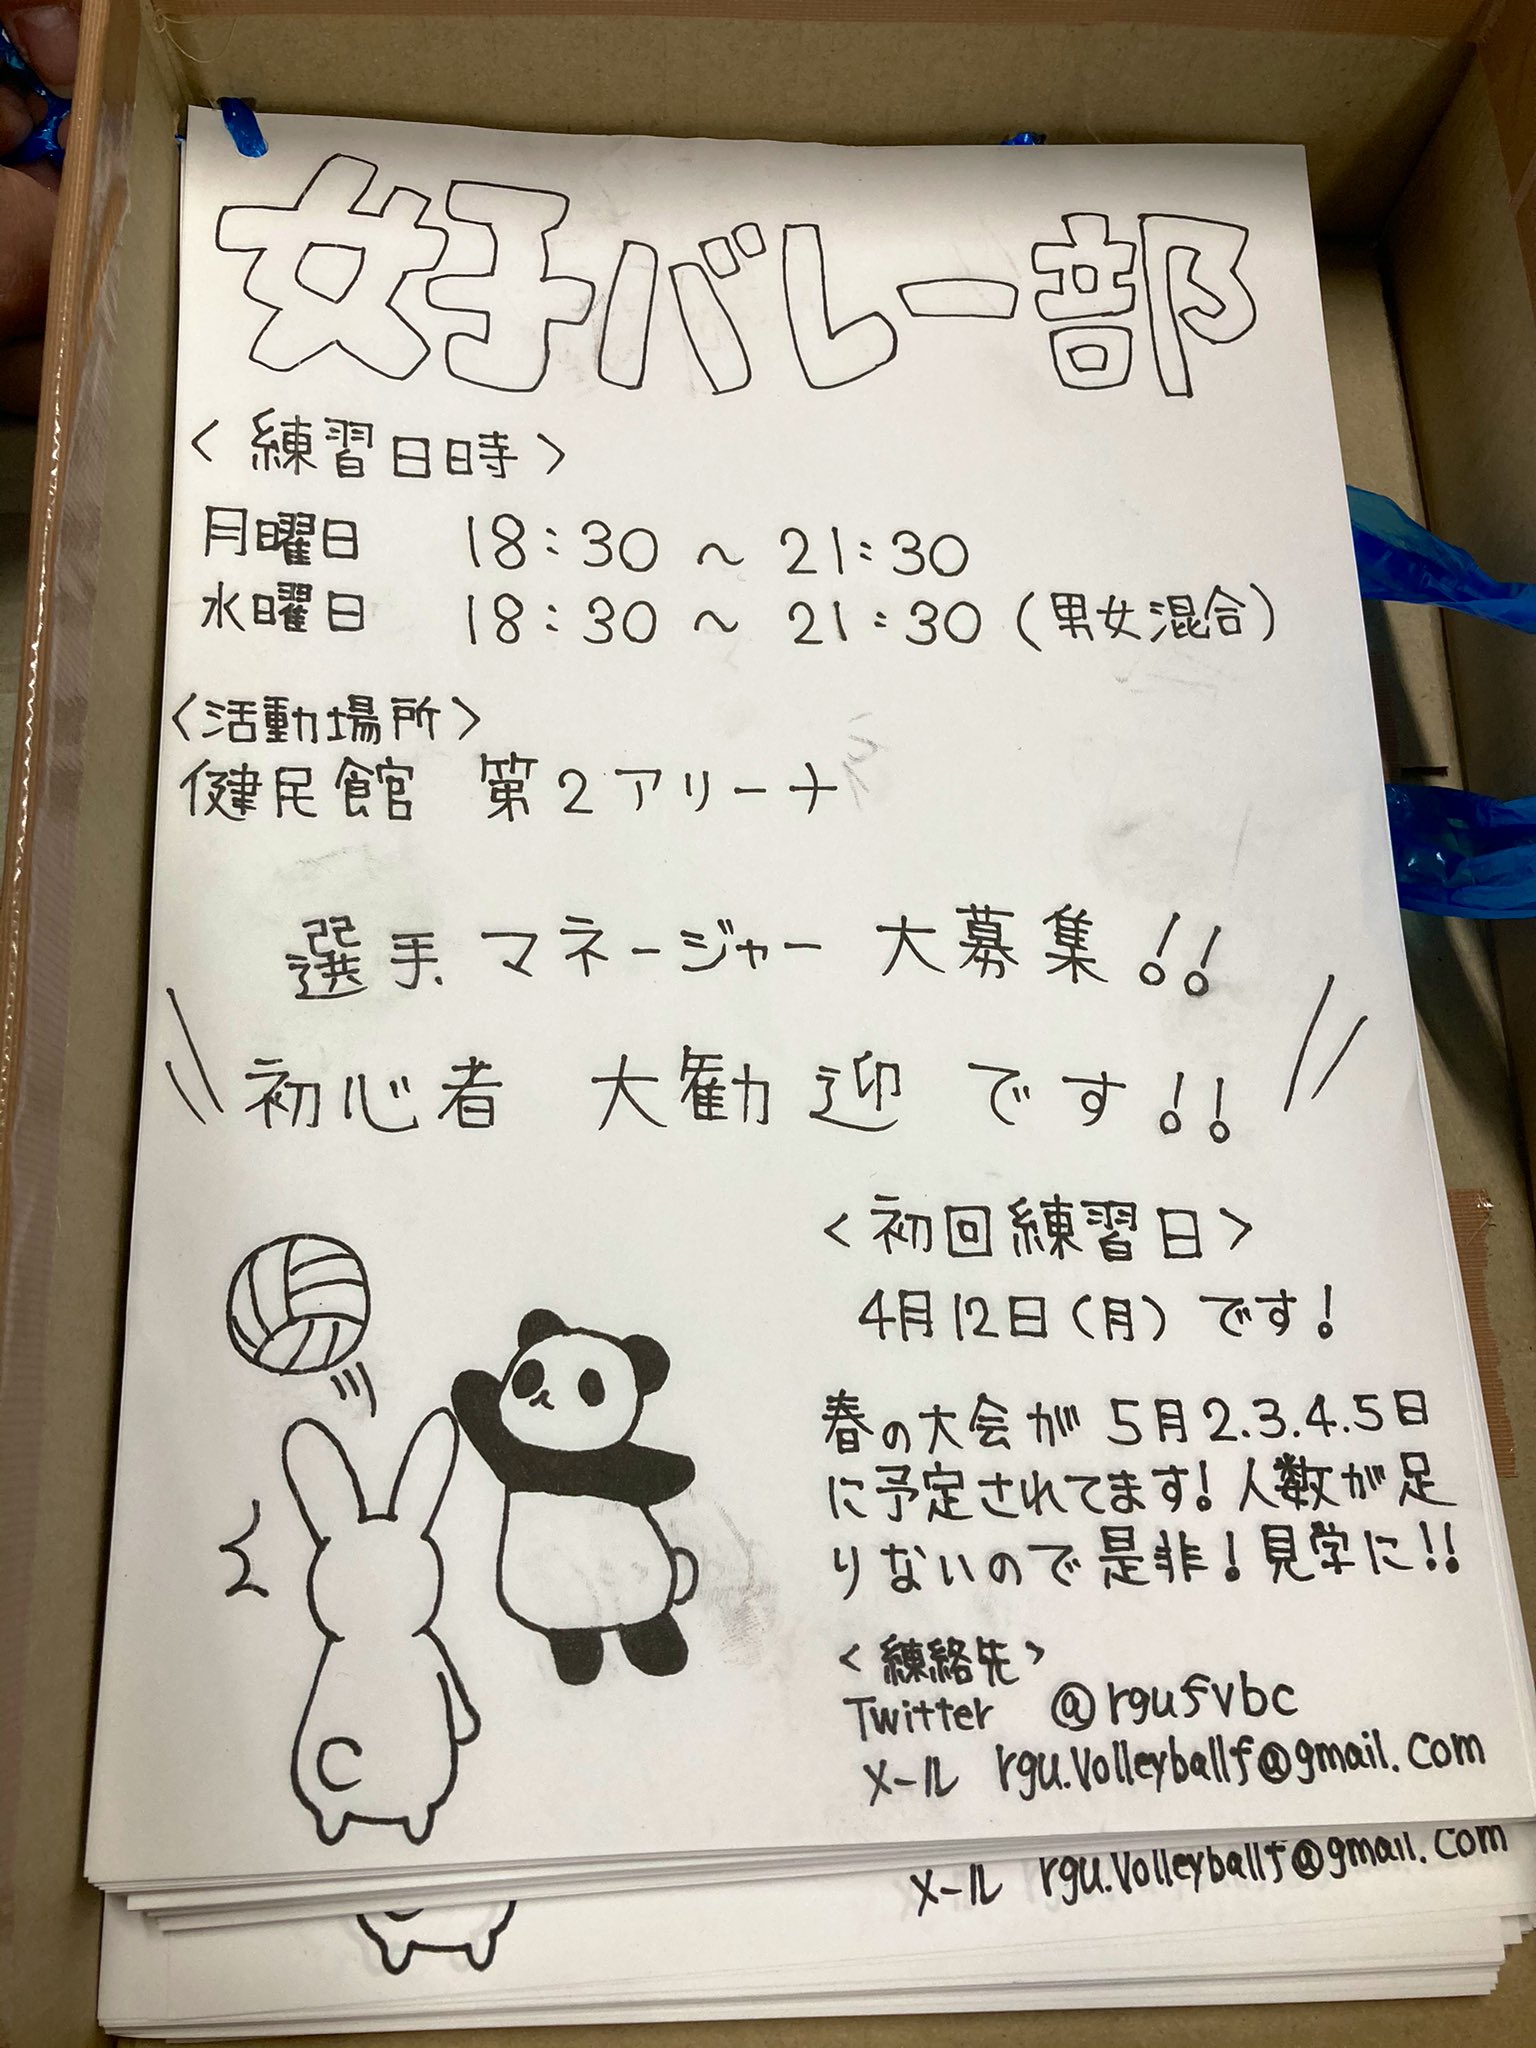 女子バレー部
<練習日時>
月曜日 18:30 ~ 21:30
水曜日 18:30 ~ 21:30 (男女混合)
<活動場所>
健民館 第2アリーナ
選手、マネージャー 大募集!!
初心者 大勧迎 です!!
<初回練習日>
4月12日(月)です!
春の大会が5月2.3.4.5日
に予定されてます!人数が足
りないので是非!見学に!!
<練絡先>
Twitter @rgufvbc
メール rgu.volleyballf@gmail.com
メール rgu.volleyballf@gmail.com